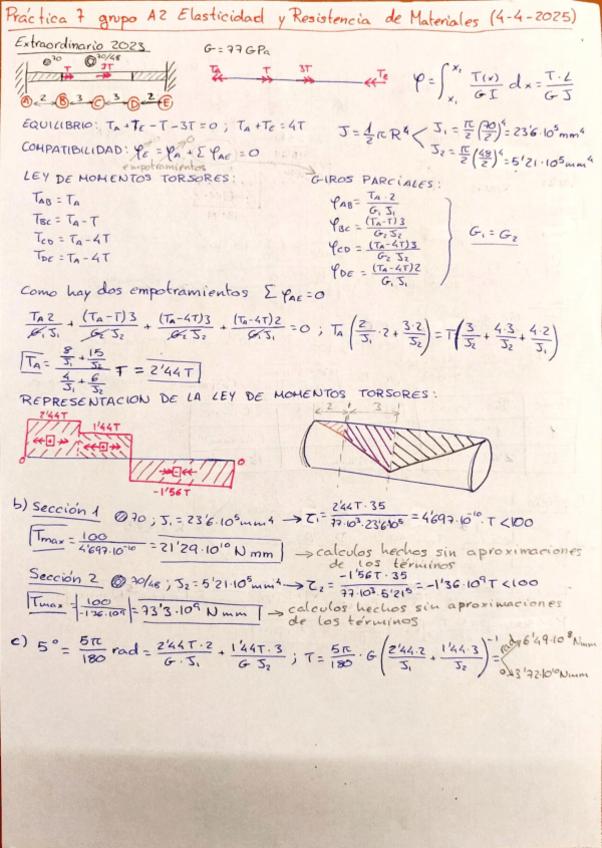 Práctica 7 grupo A2 Elasticidad y Resistencia de Materiales (4-4-2025)
Extraordinario 2023
G = 77 GPa
⌀70 ⌀70/48
T 3T
A 2 B 3 C 3 D 2 E
TA T 3T TE
φ = ∫ₓ₁ˣ² T(x)/GI dx = T·L/GJ
EQUILIBRIO: TA + TE - T - 3T = 0 ; TA + TE = 4T
J = 1/2 π R⁴ J₁ = π/2 (70/2)⁴ = 23'6·10⁵ mm⁴
J₂ = π/2 (48/2)⁴ = 5'21·10⁵ mm⁴
COMPATIBILIDAD: φE = φA + Σ φAE = 0
empotramientos
LEY DE MOMENTOS TORSORES:
TAB = TA
TBC = TA - T
TCD = TA - 4T
TDE = TA - 4T
GIROS PARCIALES:
φAB = TA·2/G₁J₁
φBC = (TA-T)3/G₂J₂
φCD = (TA-4T)3/G₂J₂
φDE = (TA-4T)2/G₁J₁
G₁ = G₂
Como hay dos empotramientos Σ φAE = 0
TA 2/G₁J₁ + (TA-T)3/G₂J₂ + (TA-4T)3/G₂J₂ + (TA-4T)2/G₁J₁ = 0 ; TA (2/J₁·2 + 3·2/J₂) = T(3/J₂ + 4·3/J₂ + 4·2/J₁)
TA = (8/J₁ + 15/J₂)/(4/J₁ + 6/J₂) T = 2'44T
REPRESENTACION DE LA LEY DE MOMENTOS TORSORES:
2'44T
1'44T
0 + + - 0
-1'56T
2 3
b) Sección 1 ⌀70 ; J₁ = 23'6·10⁵ mm⁴ → τ₁ = 2'44T·35/77·10³·23'6·10⁵ = 4'697·10⁻¹⁰·T < 100
Tmax = 100/4'697·10⁻¹⁰ = 21'29·10¹⁰ N mm → calculos hechos sin aproximaciones
de los términos
Sección 2 ⌀70/48 ; J₂ = 5'21·10⁵ mm⁴ → τ₂ = -1'56T·35/77·10³·5'21⁵ = -1'36·10⁹T < 100
Tmax = |100/-1'36·10⁹| = 73'3·10⁹ N mm → calculos hechos sin aproximaciones
de los términos
c) 5° = 5π/180 rad = 2'44T·2/G·J₁ + 1'44T·3/G J₂ ; T = 5π/180 · G (2'44·2/J₁ + 1'44·3/J₂)⁻¹ = rad 6'49·10⁸ Nmm
3'72·10¹⁰ Nmm